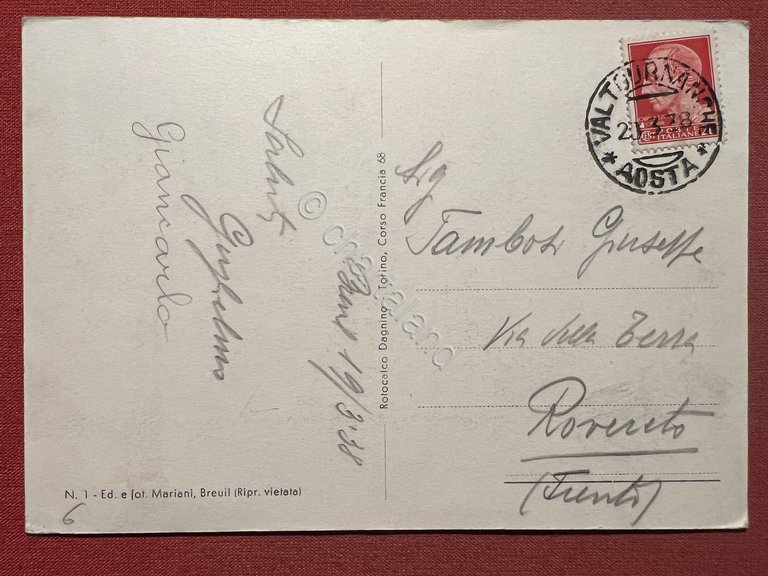 Saluti
Breuil 19/3'38
Guglielmo
Giancarlo
N. 1 - Ed. e fot. Mariani, Breuil (Ripr. vietata)
6
Rotocalco Dagnino, Torino, Corso Francia 68
© cartaland
VALTOURNANCHE
20 3 38
* AOSTA *
ITALIANE
Sig
Tambosi Giuseppe
Via della Terra
Rovereto
(Trento)